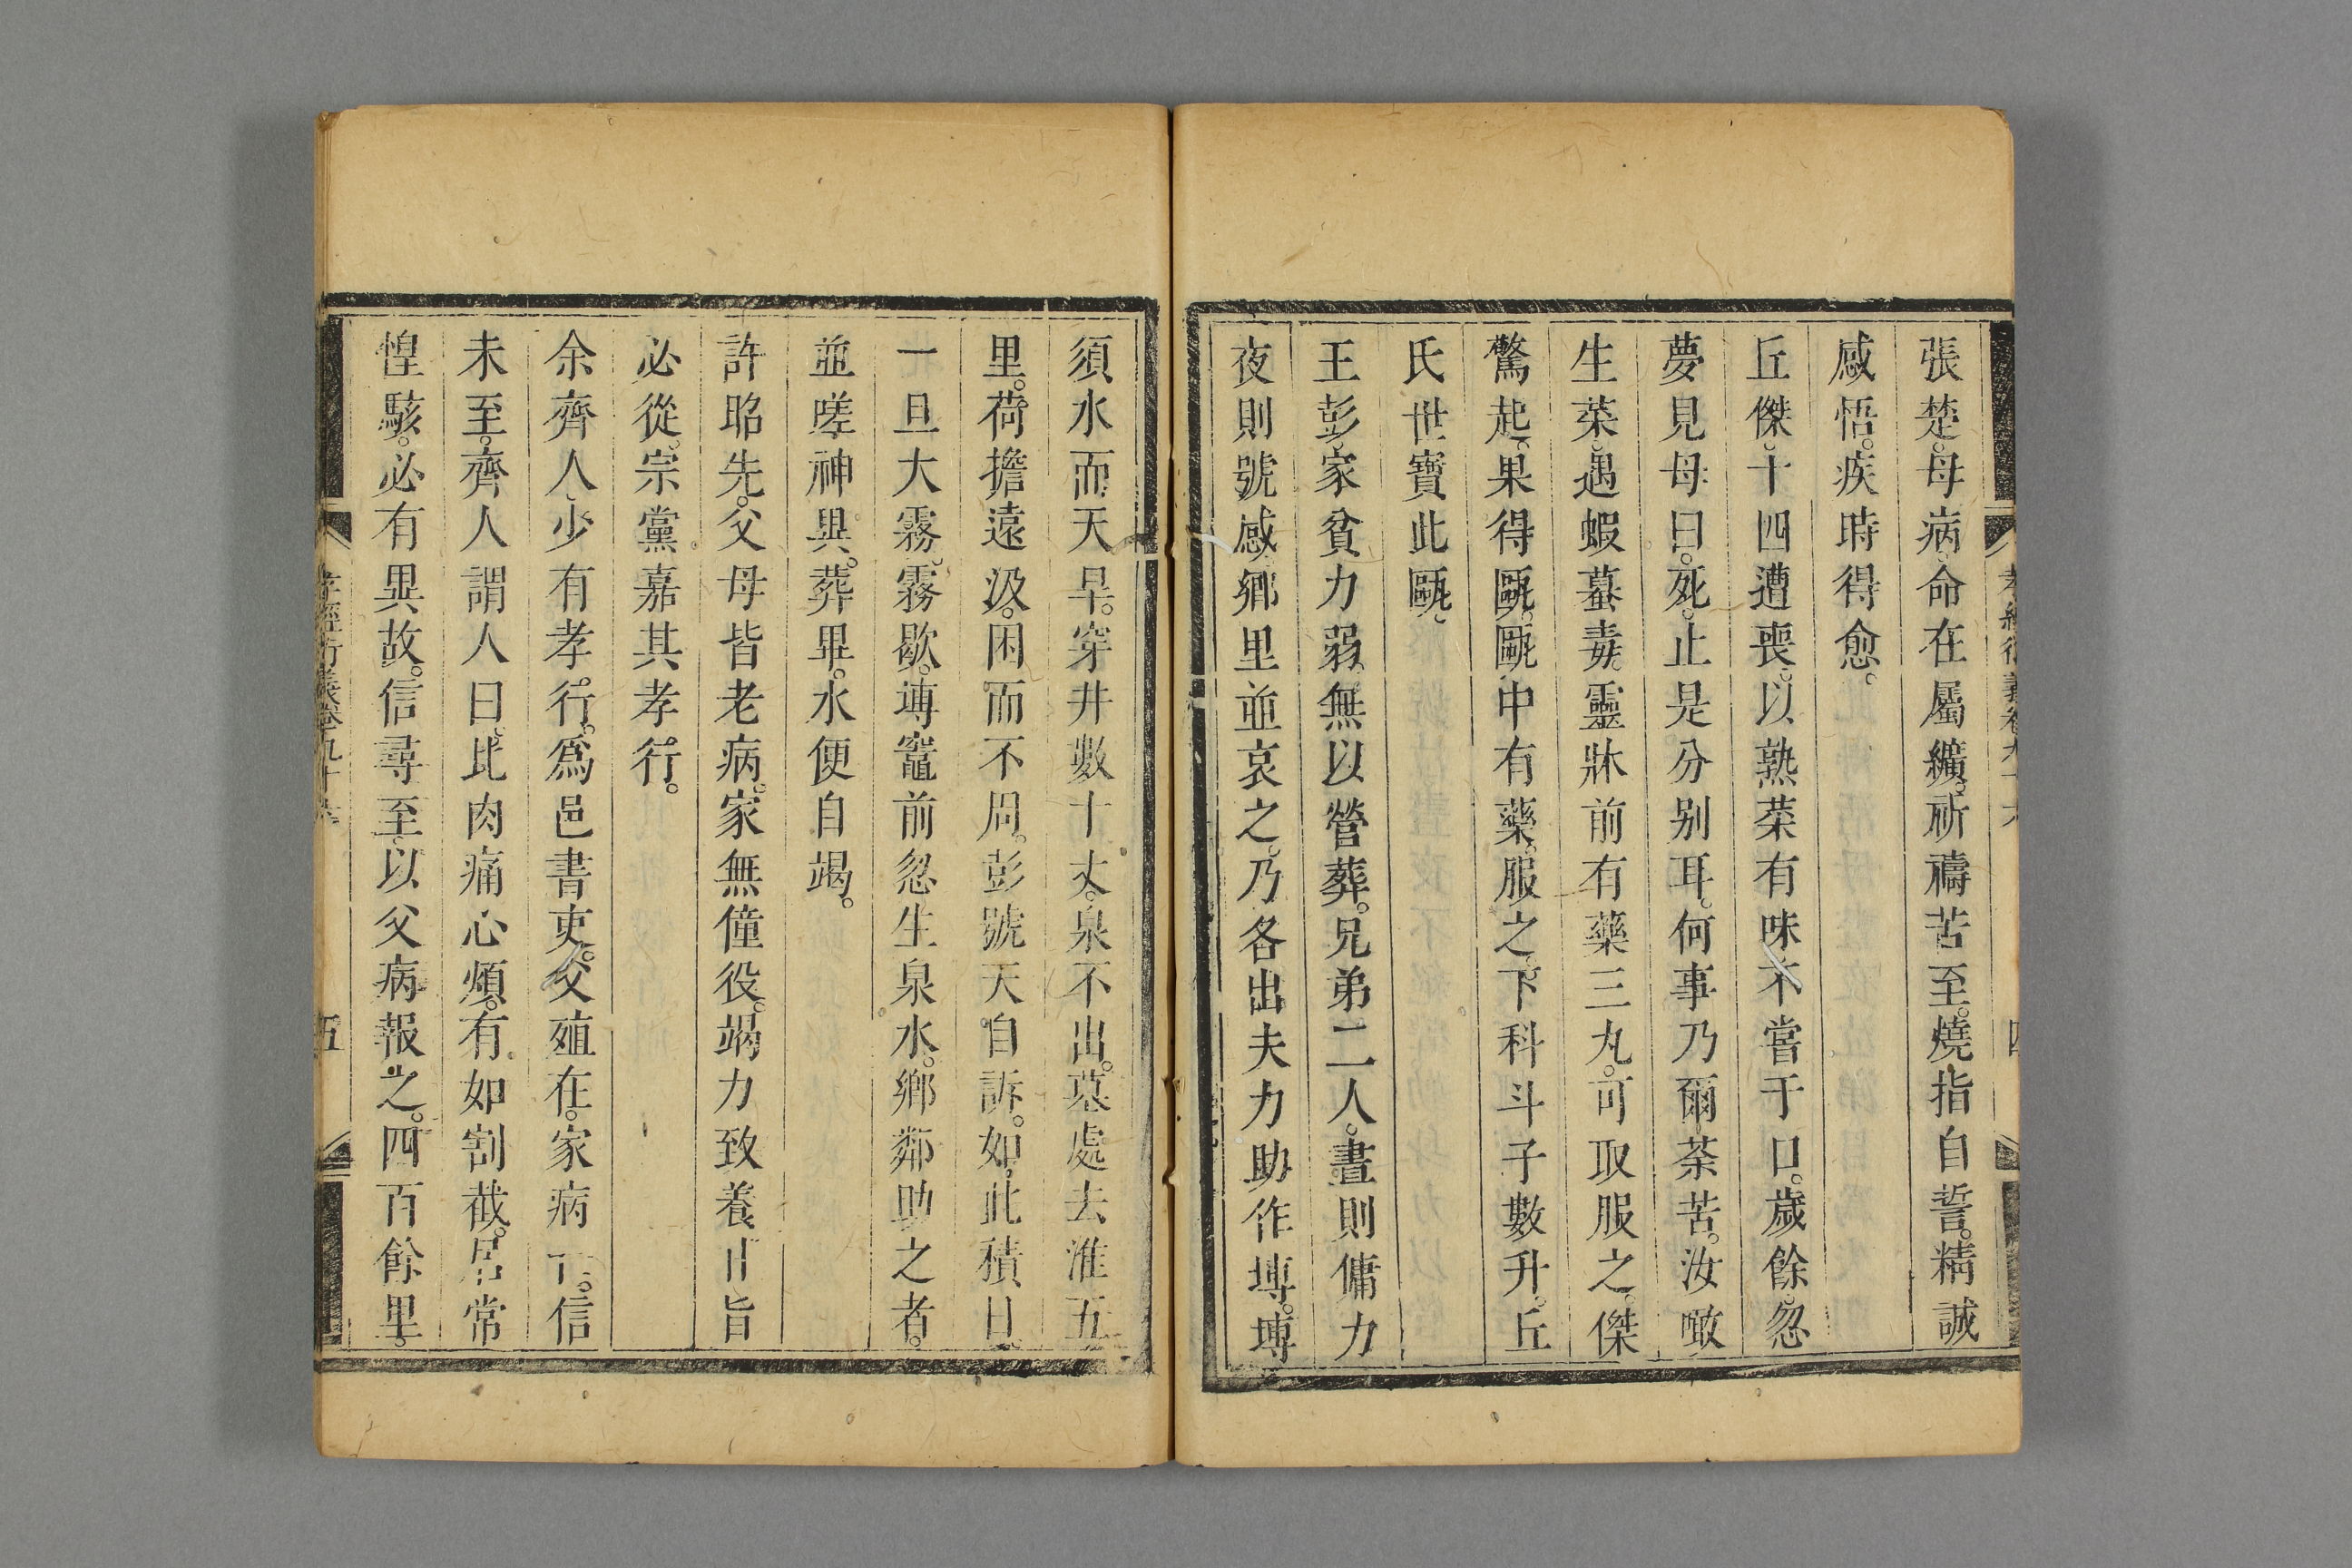 張楚。母病。命在屬纊。祈禱苦至。燒指自誓。精誠
感悟。疾時得愈。
丘傑。十四遭喪。以熟菜有味不嘗于口。歲餘。忽
夢見母曰。死。止是分别耳。何事乃爾荼苦。汝噉
生菜。遇蝦蟇毒。靈牀前有藥三丸。可取服之。傑
驚起。果得甌。甌中有藥。服之。下科斗子數升。丘
氏世寶此甌。
王彭。家貧力弱。無以營葬。兄弟二人。晝則傭力
夜則號感。鄉里並哀之。乃各出夫力助作塼。塼
須水而天旱。穿井數十丈。泉不出。墓處去淮五
里。荷擔遠汲。困而不周。彭號天自訴。如此積日。
一旦大霧。霧歇。塼竈前忽生泉水。鄉鄰助之者。
並嗟神異。葬畢。水便自竭。
許昭先。父母皆老病。家無僮役。竭力致養甘旨
必從。宗黨嘉其孝行。
余齊人。少有孝行。爲邑書吏。父殖在。家病亡。信
未至。齊人謂人曰。比肉痛心煩。有如割截。居常
惶駭。必有異故。信尋至。以父病報之。四百餘里。
孝經衍義卷九十六
五